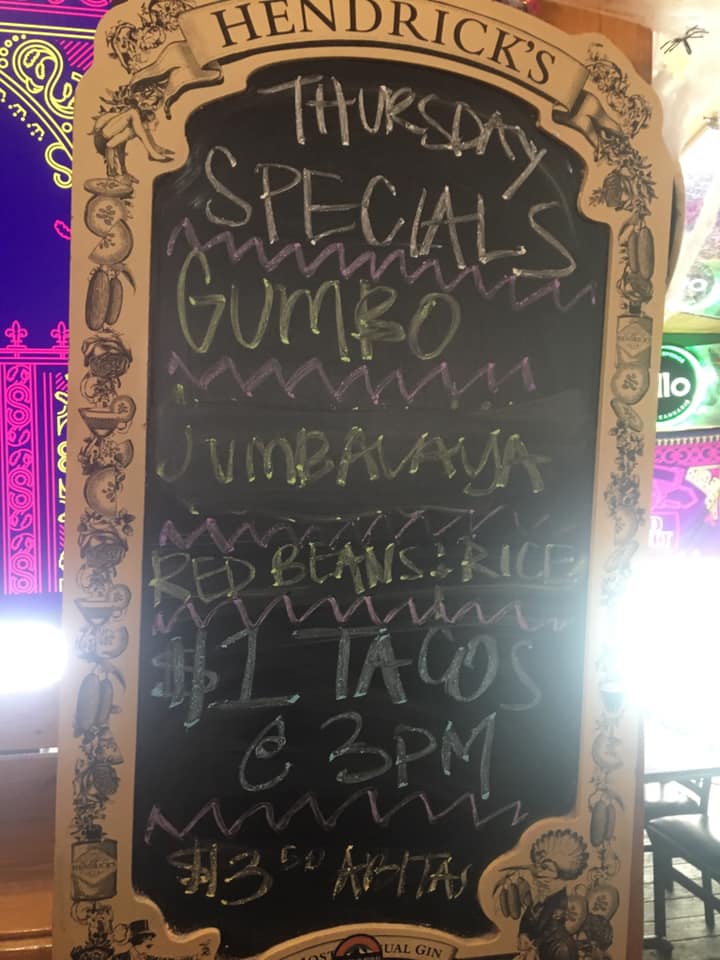 HENDRICK'S
THURSDAY
SPECIALS
GUMBO
JUMBALAYA
RED BEANS & RICE
$1 TACOS
@ 3PM
$3.50 ABITAS
HENDRICK'S
HENDRICK'S
UAL GIN
llo